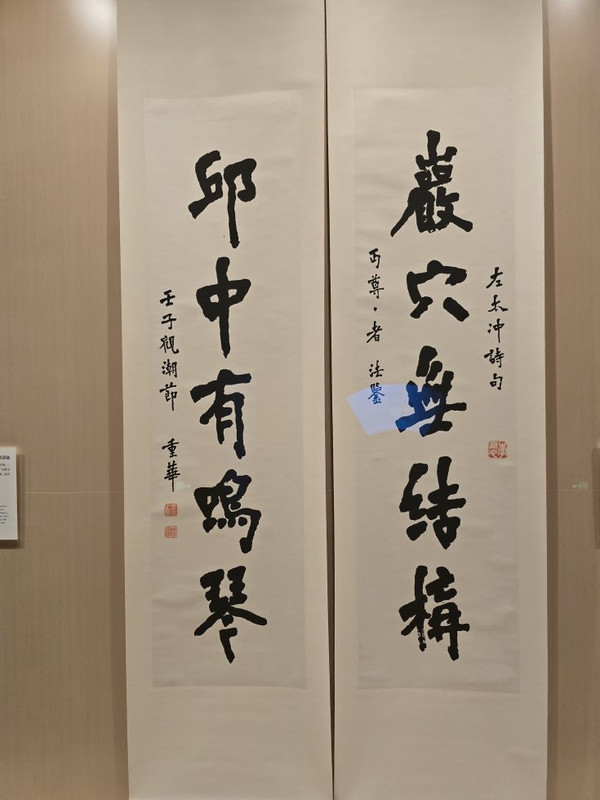 左太冲詩句
巖穴無結構
丏尊〻者 法鑒
邱中有鳴琴
壬子觀潮節 重華